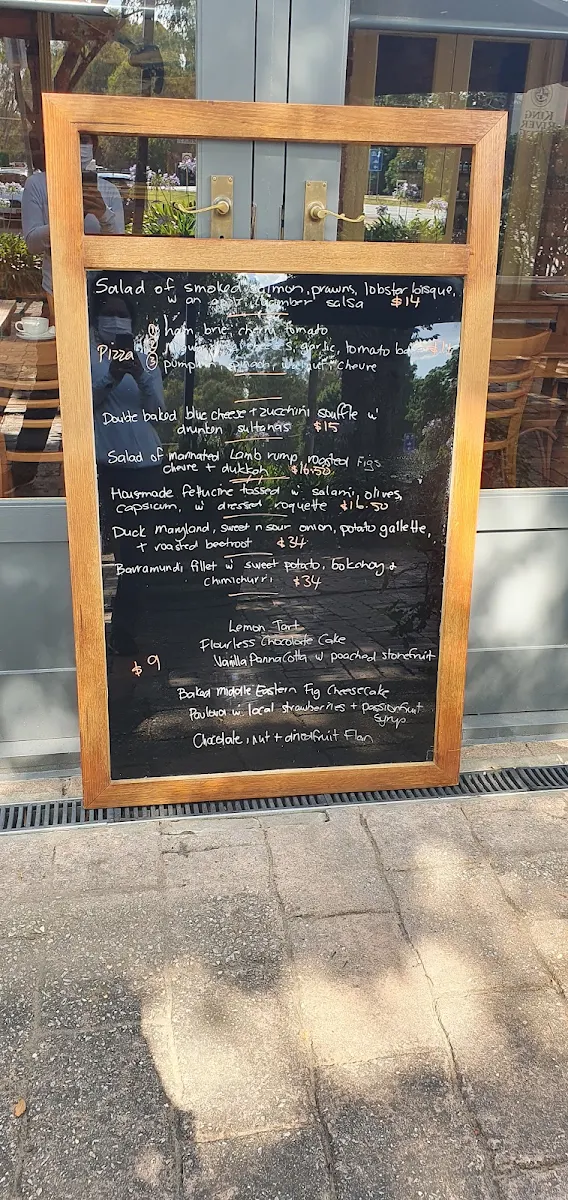 KING
RIVER
Salad of smoked salmon, prawns, lobster bisque,
w an salsa $14
Pizza
① ham, brie, cherry tomato
② garlic, tomato
③ pumpkin, spinach, walnut, chevre
Double baked blue cheese + zucchini souffle w'
drunken sultanas $15
Salad of marinated Lamb rump, roasted Figs
chevre + dukkah $16.50
Housmade fettucine tossed w' salami, olives,
capsicum, w' dressed roquette $16.50
Duck maryland, sweet n sour onion, potato gallette,
+ roasted beetroot $34
Barramundi fillet w' sweet potato, bokchoy +
chimichurri $34
Lemon Tart
Flourless Chocolate Cake
$9
Vanilla Pannacotta w poached stonefruit
Baked Middle Eastern Fig Cheesecake
Pavlova w' local strawberries + passionfruit
syrup
Chocolate, nut + driedfruit Flan